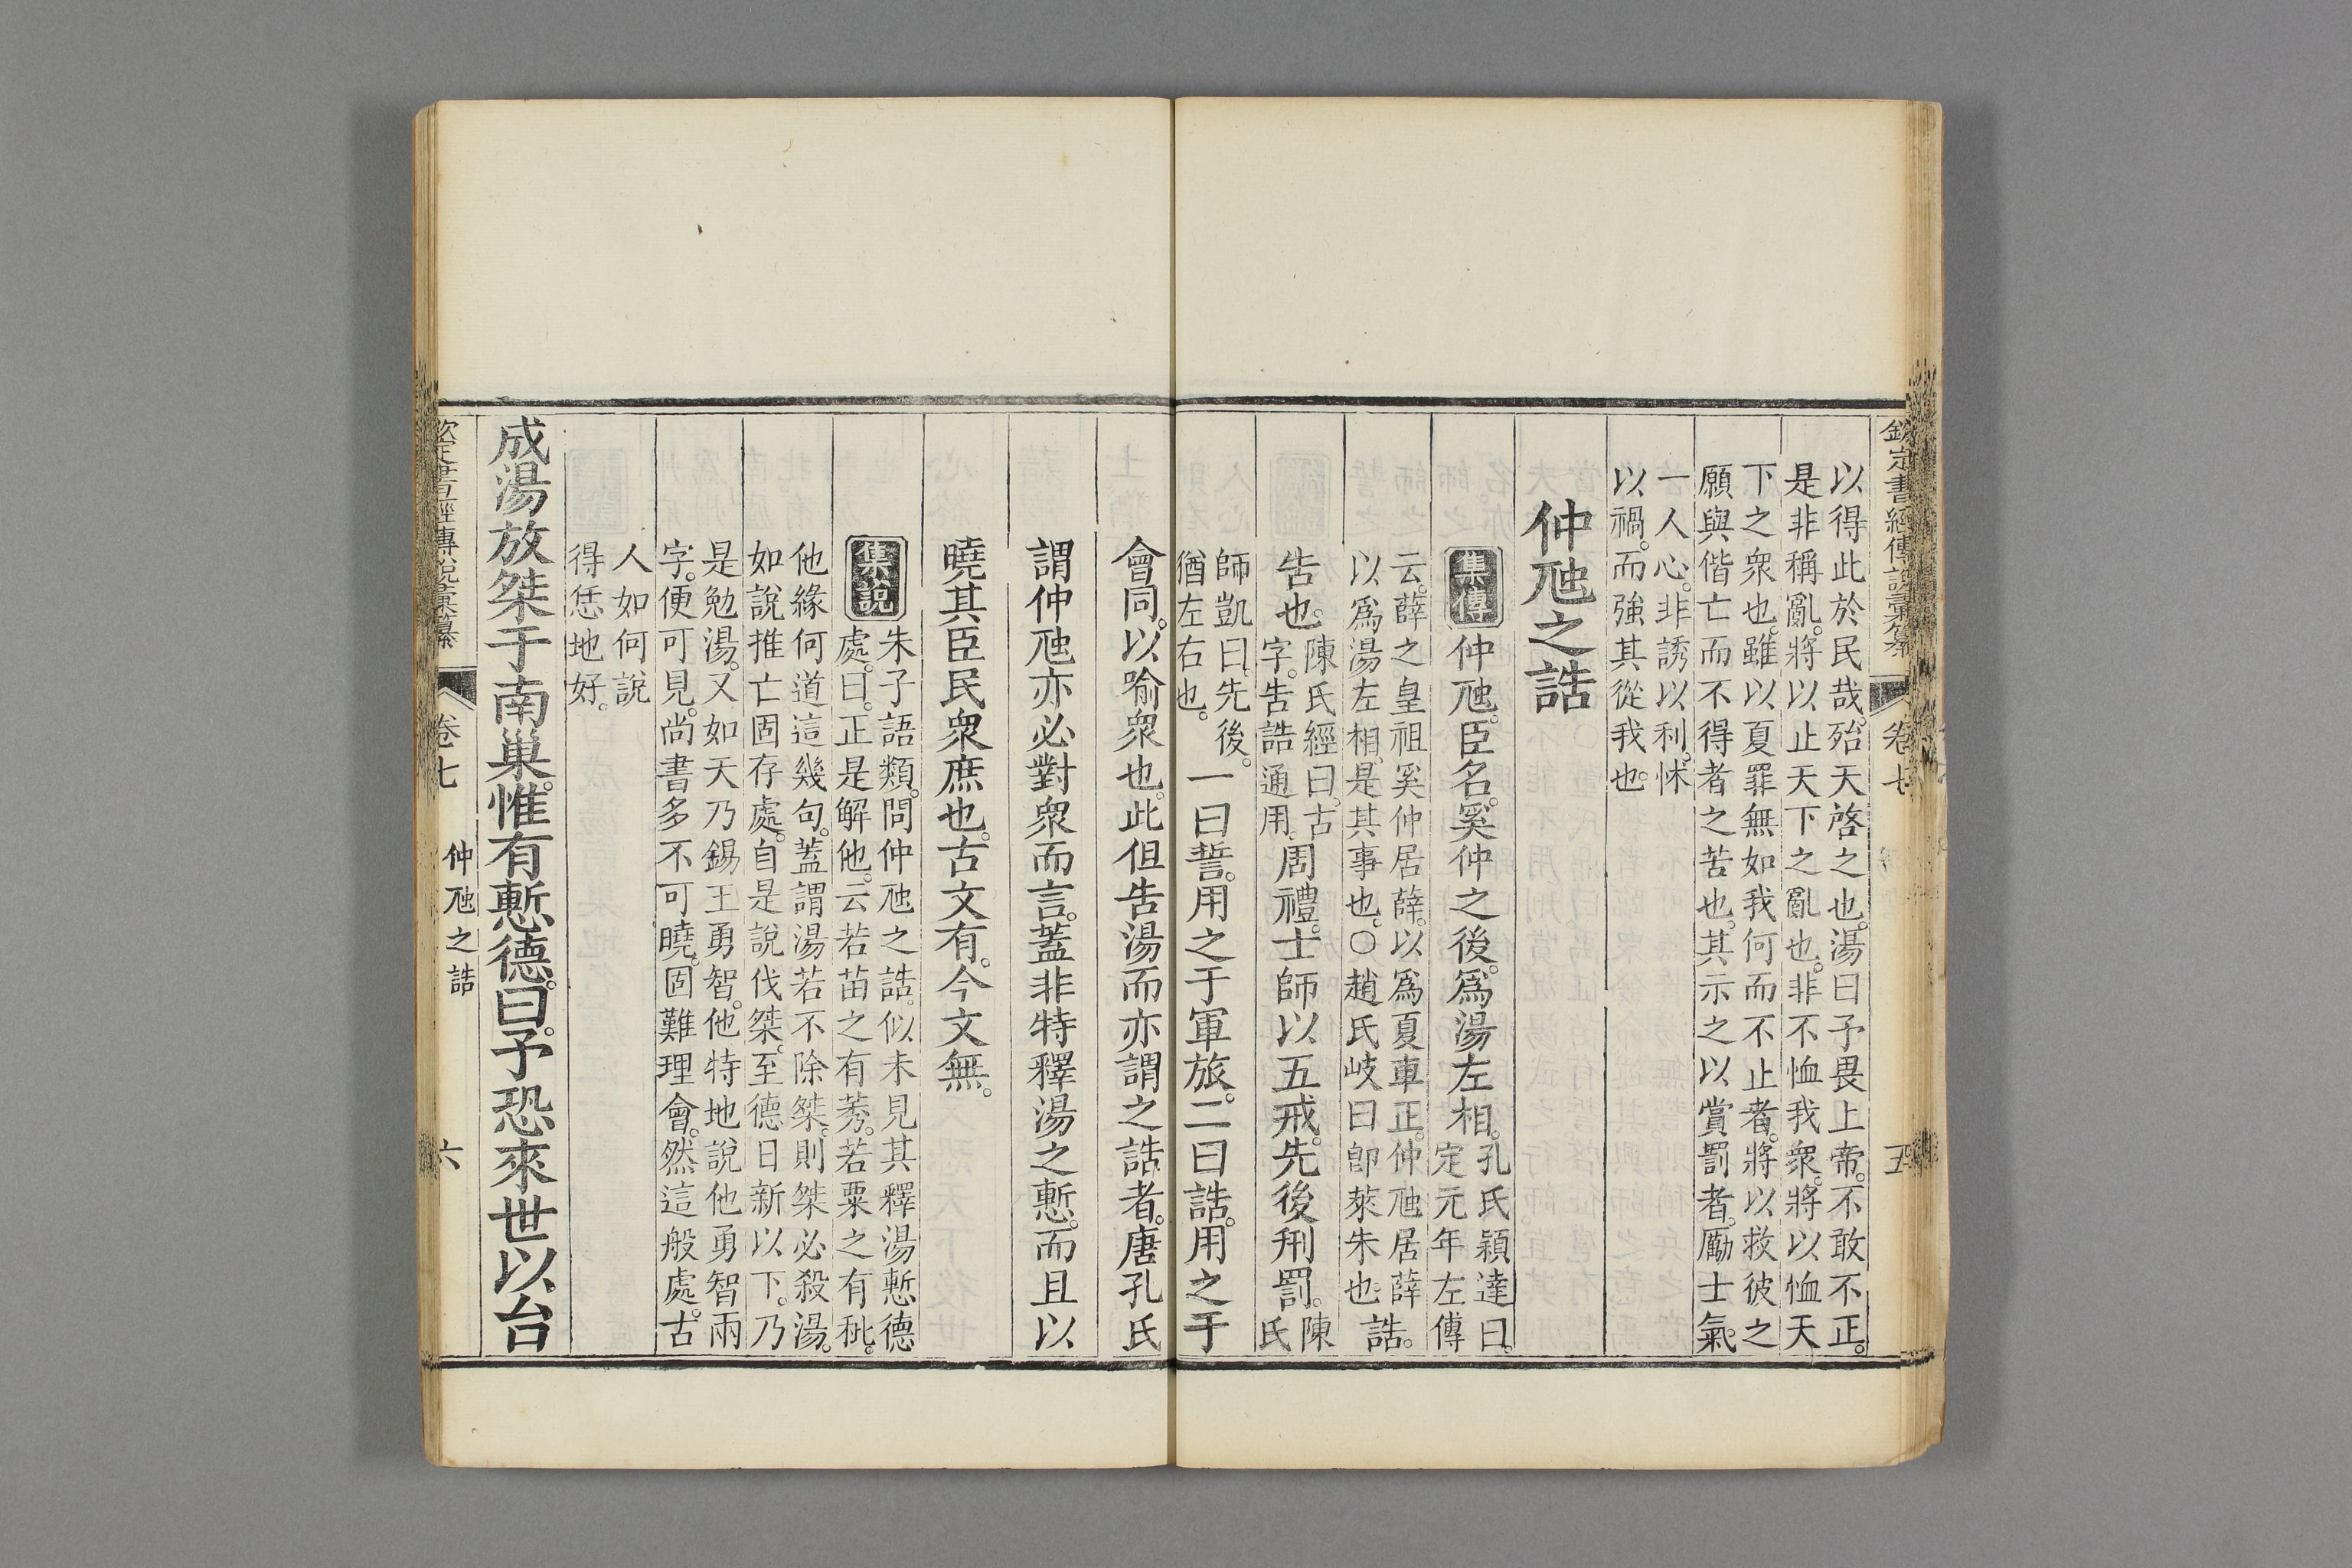 欽定書經傳說彙纂 卷七 五
以得此於民哉。殆天啓之也。湯曰予畏上帝。不敢不正。
是非稱亂。將以止天下之亂也。非不恤我衆。將以恤天
下之衆也。雖以夏罪無如我何而不止者。將以救彼之
願與偕亡而不得者之苦也。其示之以賞罰者。勵士氣。
一人心。非誘以利。怵
以禍。而強其從我也。
仲虺之誥
集傳 仲虺。臣名。奚仲之後。爲湯左相。孔氏穎達曰。
定元年左傳
云。薛之皇祖奚仲居薛。以爲夏車正。仲虺居薛。
以爲湯左相。是其事也。○趙氏岐曰卽萊朱也。誥。
告也。陳氏經曰。古
字。告誥通用。周禮。士師以五戒。先後刑罰。陳
氏
師凱曰。先後。
猶左右也。一曰誓。用之于軍旅。二曰誥。用之于
會同。以喻衆也。此但告湯而亦謂之誥者。唐孔氏
謂仲虺亦必對衆而言。蓋非特釋湯之慙。而且以
曉其臣民衆庶也。古文有。今文無。
集說 朱子語類。問仲虺之誥。似未見其釋湯慙德
處。曰。正是解他。云若苗之有莠。若粟之有秕。
他緣何道這幾句。蓋謂湯若不除桀。則桀必殺湯。
如說推亡固存處。自是說伐桀。至德日新以下。乃
是勉湯。又如天乃錫王勇智。他特地說他勇智兩
字。便可見。尚書多不可曉。固難理會。然這般處。古
人如何說
得恁地好。
成湯放桀于南巢。惟有慙德。曰。予恐來世以台
欽定書經傳說彙纂 卷七 仲虺之誥 六